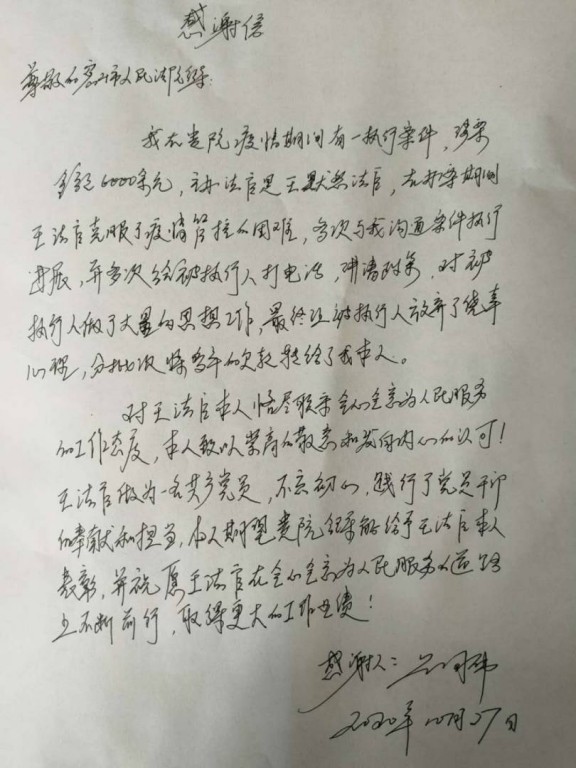 感谢信
尊敬的密州市人民法院领导:
我在贵院疫情期间有一执行案件,涉案
金额6000余元,主办法官是王默然法官,在办案期间
王法官克服了疫情管控的困难,多次与我沟通案件执行
进展,并多次给被执行人打电话,讲清政策,对被
执行人做了大量的思想工作,最终让被执行人放弃了侥幸
心理,分批次将多年的欠款转给了我本人。
对王法官本人恪尽职守全心全意为人民服务
的工作态度,本人致以崇高的敬意和发自内心的认可!
王法官做为一名共产党员,不忘初心,践行了党员干部
的奉献和担当,本人期望贵院领导能给予王法官本人
表彰,并祝愿王法官在全心全意为人民服务的道路
上不断前行,取得更大的工作业绩!
感谢人:
2020年10月27日